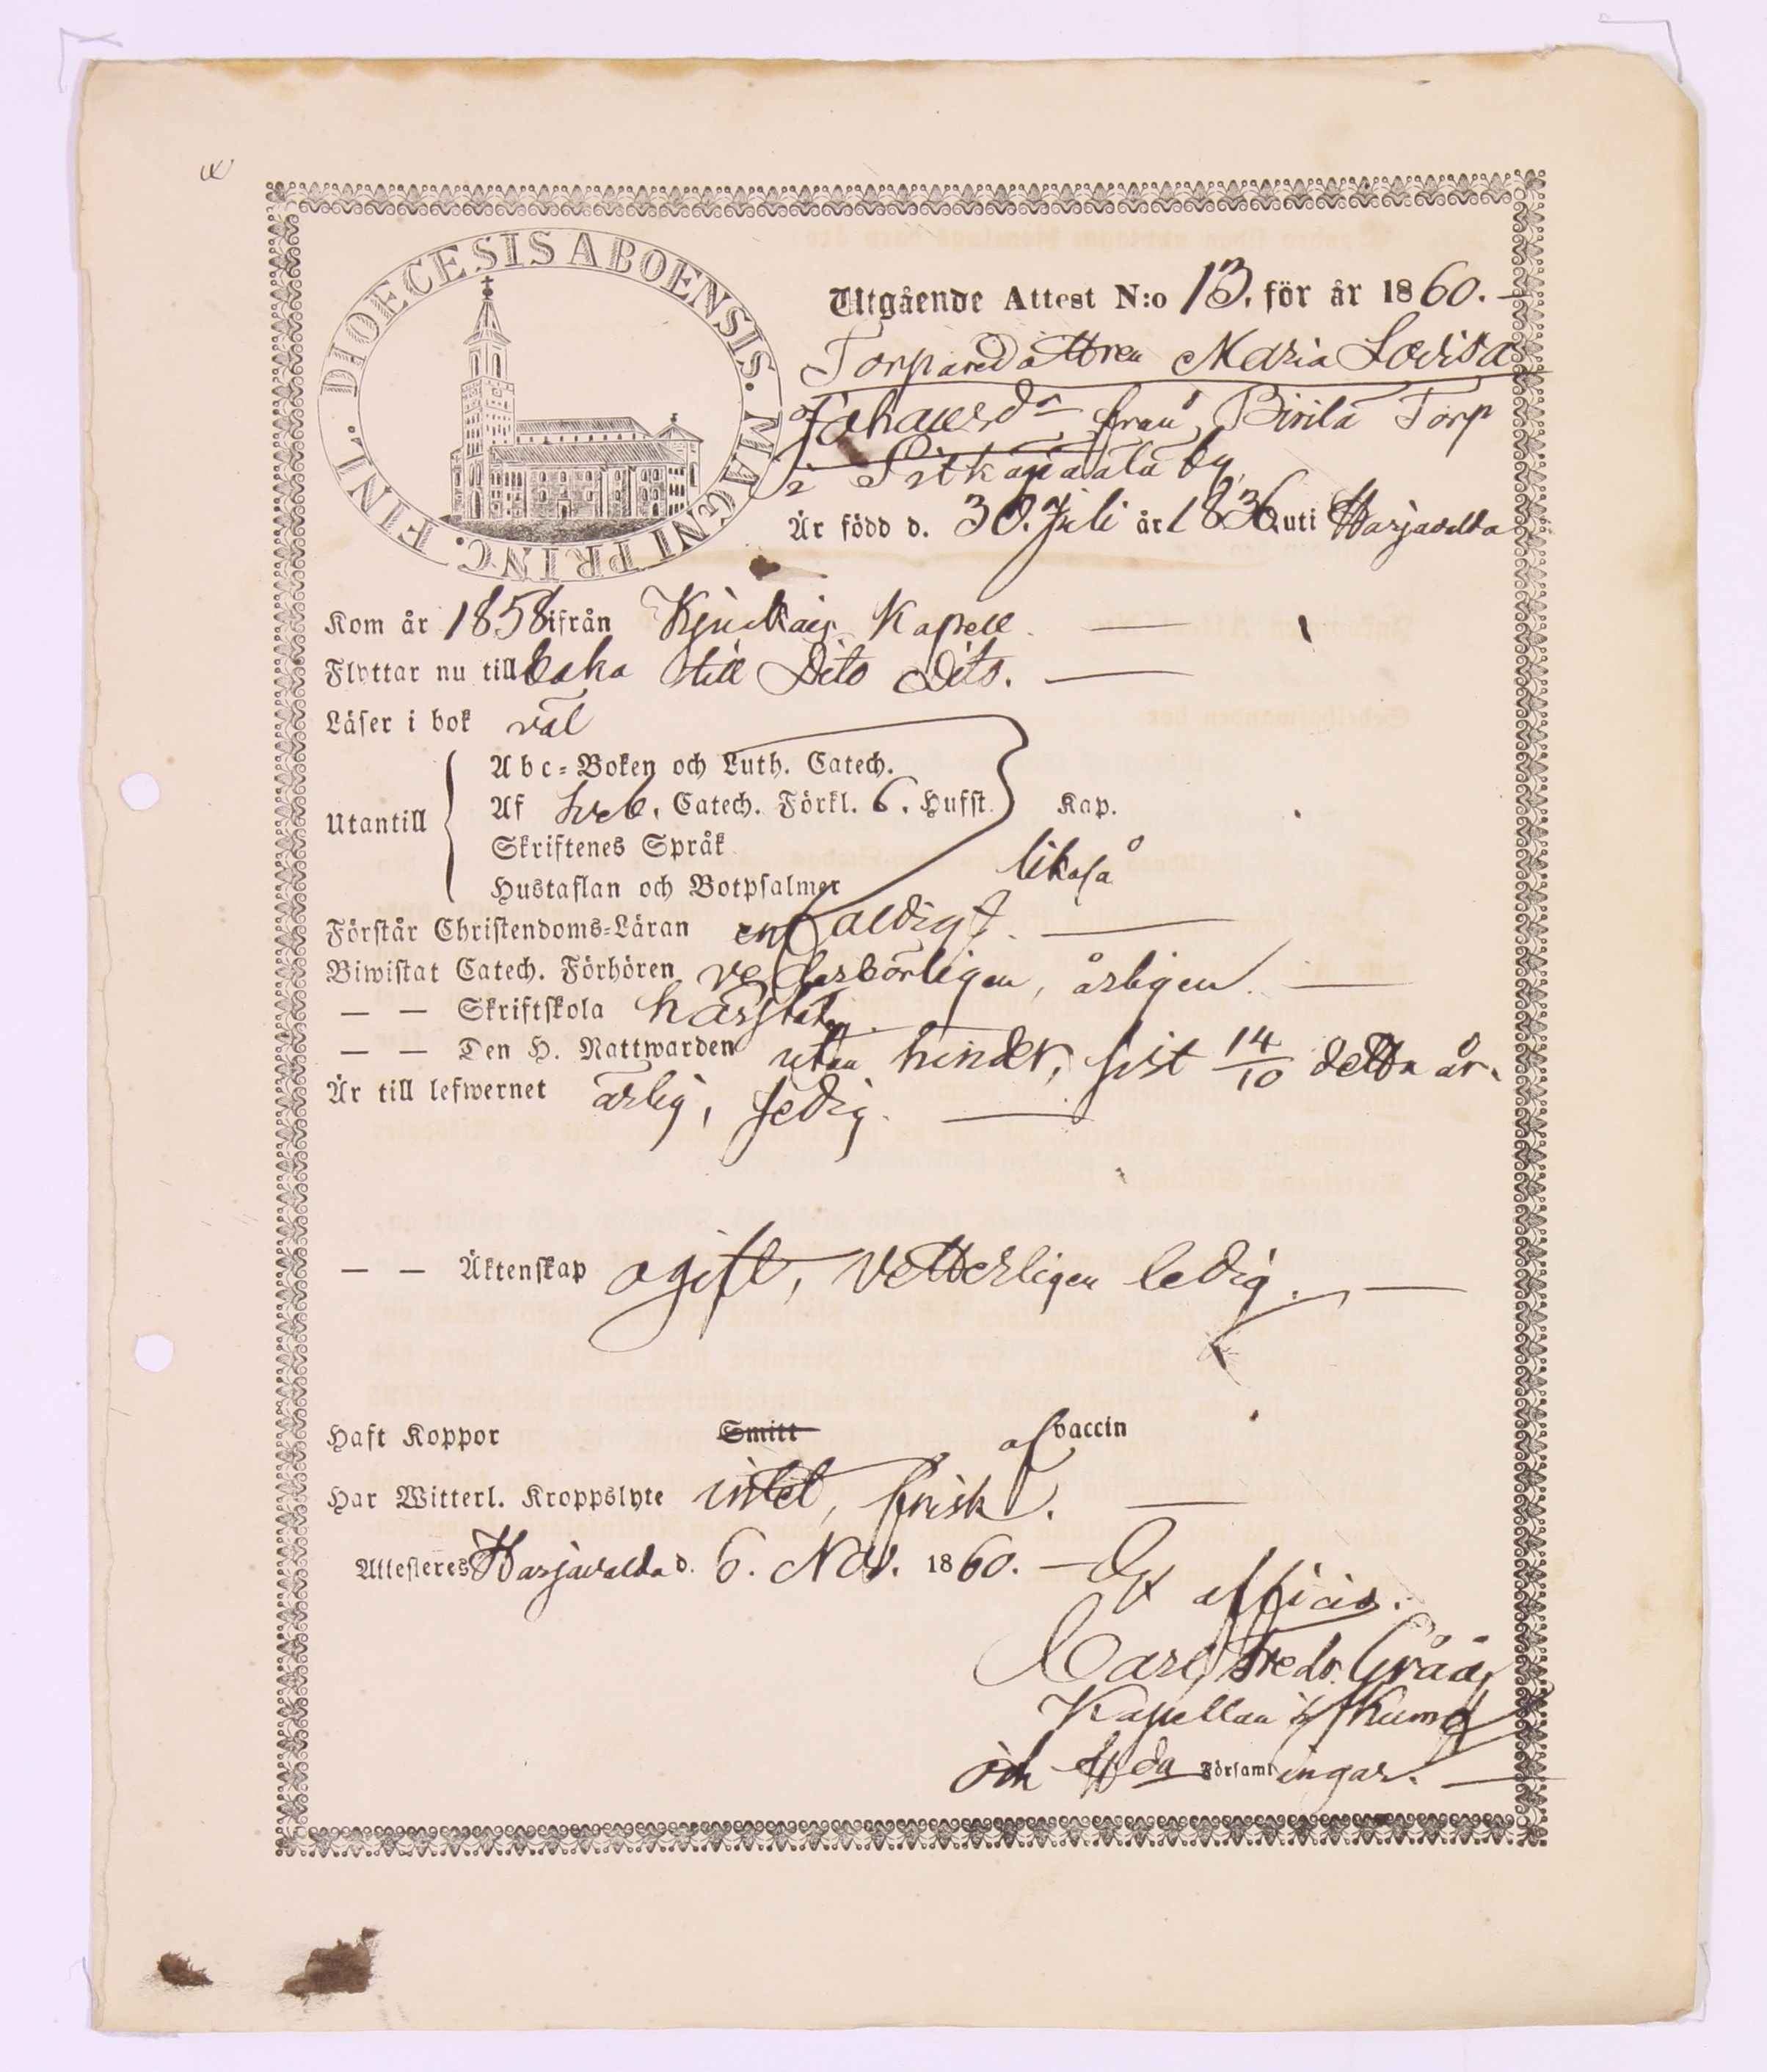 DIOECESIS ABOENSIS. MAGNI PRINC. FINL.
Utgående Attest N:o 13. för år 1860. —
Torparedottren Maria Lovisa
Johansdr från Birilä Torp
i Pitkäpaala by
Är född d. 30. Juli år 1836 uti Harjavalda
Kom år 1858 ifrån Kjukais Kapell. —
Flyttar nu tillbaka till Dito Dito. —
Läser i bok väl
Abc-Boken och Luth. Catech.
Utantill Af Sveb. Catech. Förkl. 6. Hufst. Kap.
Skriftenes Språk likaså
Hustaflan och Botpsalmer
Förstår Christendoms-Läran enfaldigt. —
Biwistat Catech. Förhören vederbörligen, årligen. —
— — Skriftskola härstädes
— — Den H. Nattwarden utan hinder, sist 14/10 detta år.
Är till lefwernet ärlig, sedig. —
— — Äktenskap ogift, vetterligen ledig. —
Haft Koppor Smitt af vaccin
Har Witterl. Kroppslyte intet, frisk. —
Attesteres Harjavalda d. 6. Nov. 1860. — Ex officio.
Carl Fredr. Gråå
Kapellan i Kumo
och Hda Församlingar. —